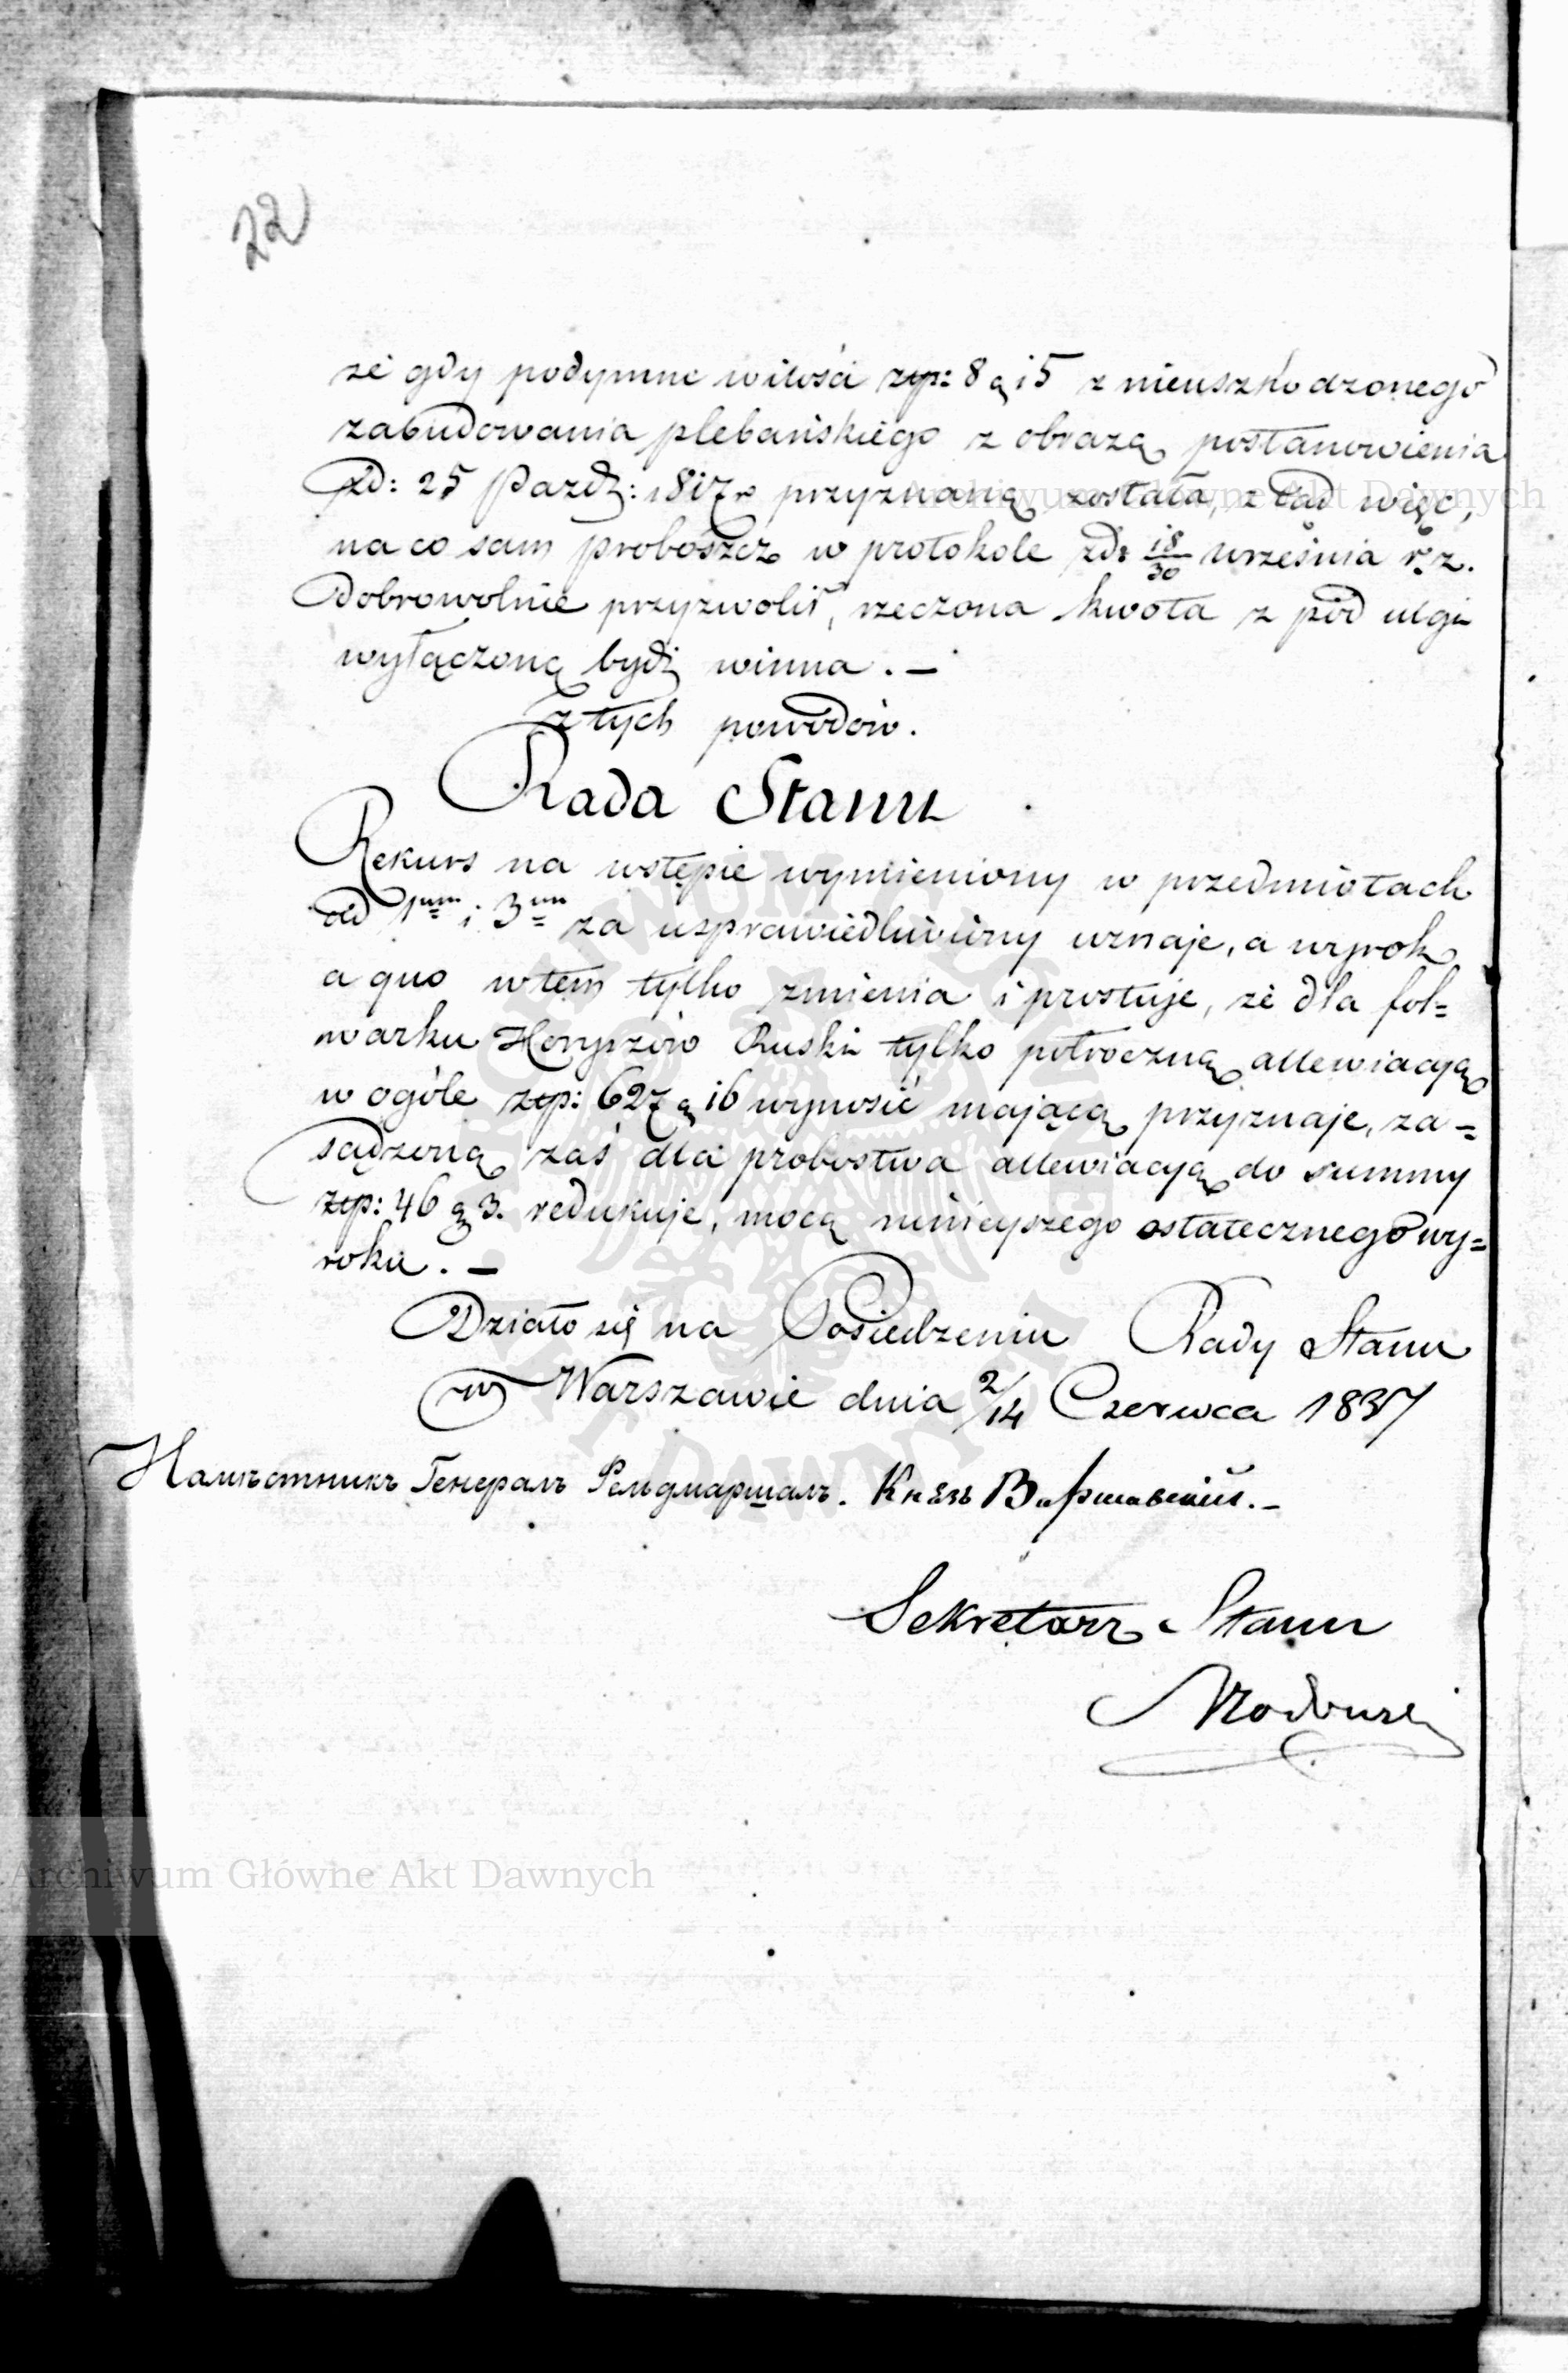 22
że gdy podymne w ilości złp: 8 g 15 z nieuszkodzonego
zabudowania plebańskiego z obrazą postanowienia
zd: 25 Paźdź: 1817 r przyznaną została, z tąd więc,
na co sam proboszcz w protokole zd: 18/30 września r. z.
dobrowolnie przyzwolił, rzeczona kwota z pód ulgi
wyłączoną bydź winna. —
Z tych powodów.
Rada Stanu
Rekurs na wstępie wymieniony w przedmiotach
ad 1um i 3um za usprawiedliwiony uznaje, a wyrok
a quo w tem tylko zmienia i prostuje, że dla fol=
warku Horyszów Ruski tylko półroczną allewiacyą
w ogóle złp: 627 g 16 wynosić mającą przyznaje, za=
sądzoną zaś dla probostwa allewiacyą do summy
złp: 46 g 3. redukuje, mocą ninieyszego ostatecznego wy=
roku. —
Działo się na Posiedzeniu Rady Stanu
w Warszawie dnia 2/14 Czerwca 1837
Намѣстникъ Генералъ Фельдмаршалъ. Князь Варшавскій. —
Sekretarz Stanu
Archiwum Główne Akt Dawnych
Archiwum Główne Akt Dawnych
ARCHIWUM GŁÓWNE AKT DAWNYCH